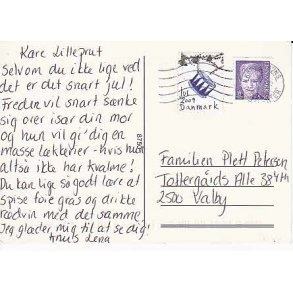 Kære Lilleprut
Selvom du ikke lige ved
det er det snart jul!
Freden vil snart sænke
sig over især din mor
og hun vil gi' dig en
masse lækkerier - hvis hun
altså ikke har kvalme!
Du kan lige så godt lære at
spise foie gras og drikke
rødvin med det samme.
Jeg glæder mig til at se dig!
Knus Lena
Jul
2009
Danmark
Familien Plett Petersen
Toftegårds Alle 38 4th
2500 Valby